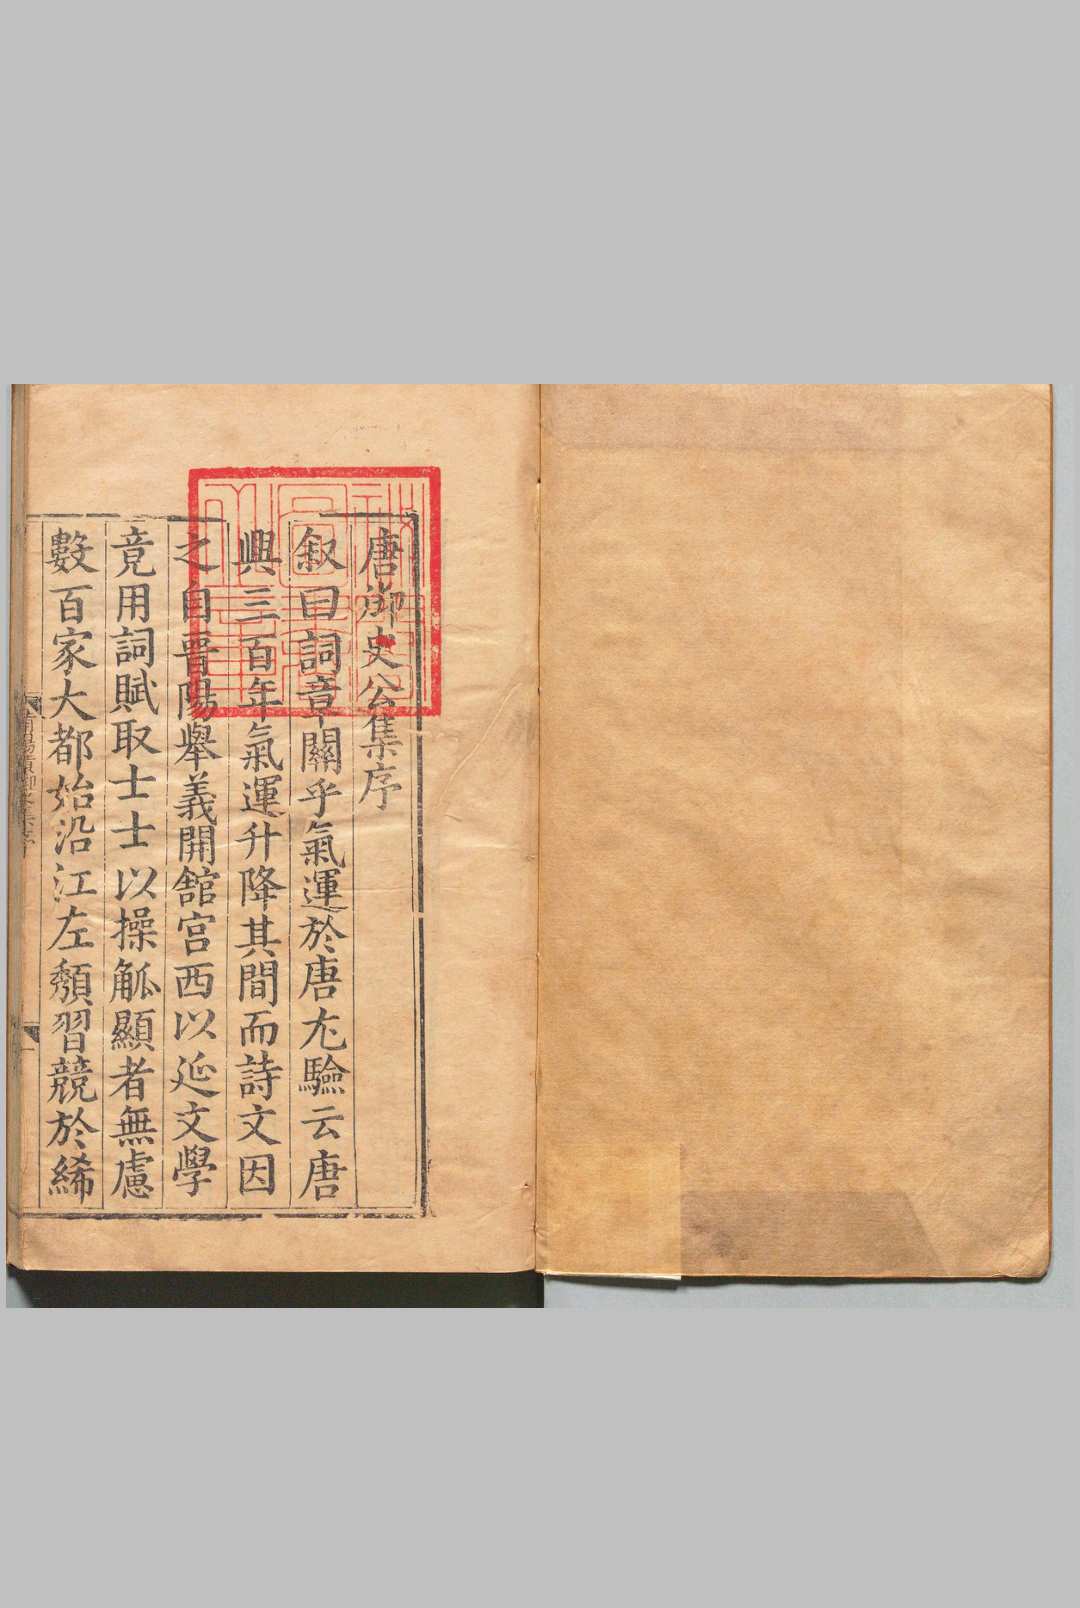 唐御史公集序
叙曰詞章關乎氣運於唐尤驗云唐
興三百年氣運升降其間而詩文因
之自晉陽舉義開舘宫西以延文學
竟用詞賦取士士以操觚顯者無慮
數百家大都始沿江左頽習競於絺